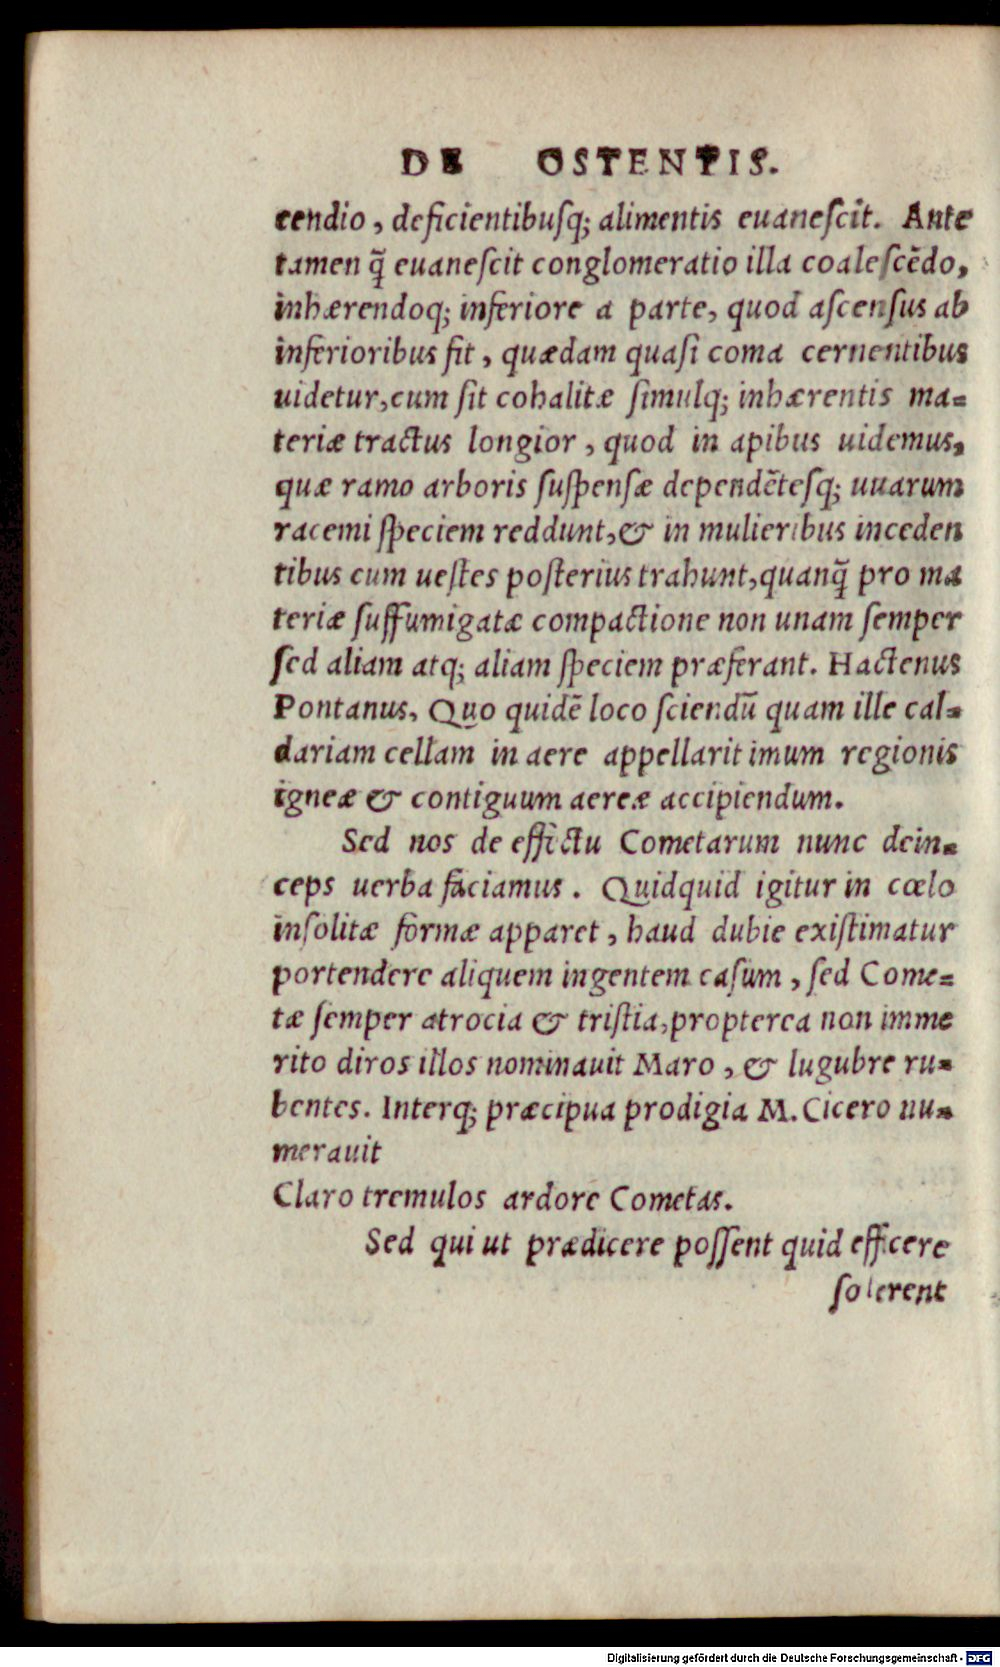 DE OSTENTIS.
cendio, deficientibuſq; alimentis euaneſcit. Ante
tamen q̃ euaneſcit conglomeratio illa coaleſcẽdo,
inhærendoq; inferiore a parte, quod aſcenſus ab
inferioribus fit, quædam quaſi coma cernentibus
uidetur, cum ſit cohalitæ ſimulq; inhærentis ma-
teriæ tractus longior, quod in apibus uidemus,
quæ ramo arboris ſuſpenſæ dependẽteſq; uuarum
racemi ſpeciem reddunt, & in mulieribus inceden
tibus cum ueſtes poſterius trahunt, quanq̃ pro ma
teriæ ſuffumigatæ compactione non unam ſemper
ſed aliam atq; aliam ſpeciem præferant. Hactenus
Pontanus, Quo quidẽ loco ſciendũ quam ille cal-
dariam cellam in aere appellarit imum regionis
igneæ & contiguum aereæ accipiendum.
Sed nos de effectu Cometarum nunc dein-
ceps uerba faciamus. Quidquid igitur in cœlo
inſolitæ formæ apparet, haud dubie exiſtimatur
portendere aliquem ingentem caſum, ſed Come-
tæ ſemper atrocia & triſtia, propterea non imme
rito diros illos nominauit Maro, & lugubre ru-
bentes. Interq; præcipua prodigia M. Cicero nu-
merauit
Claro tremulos ardore Cometas.
Sed qui ut prædicere poſſent quid efficere
ſolerent
Digitalisierung gefördert durch die Deutsche Forschungsgemeinschaft - DFG